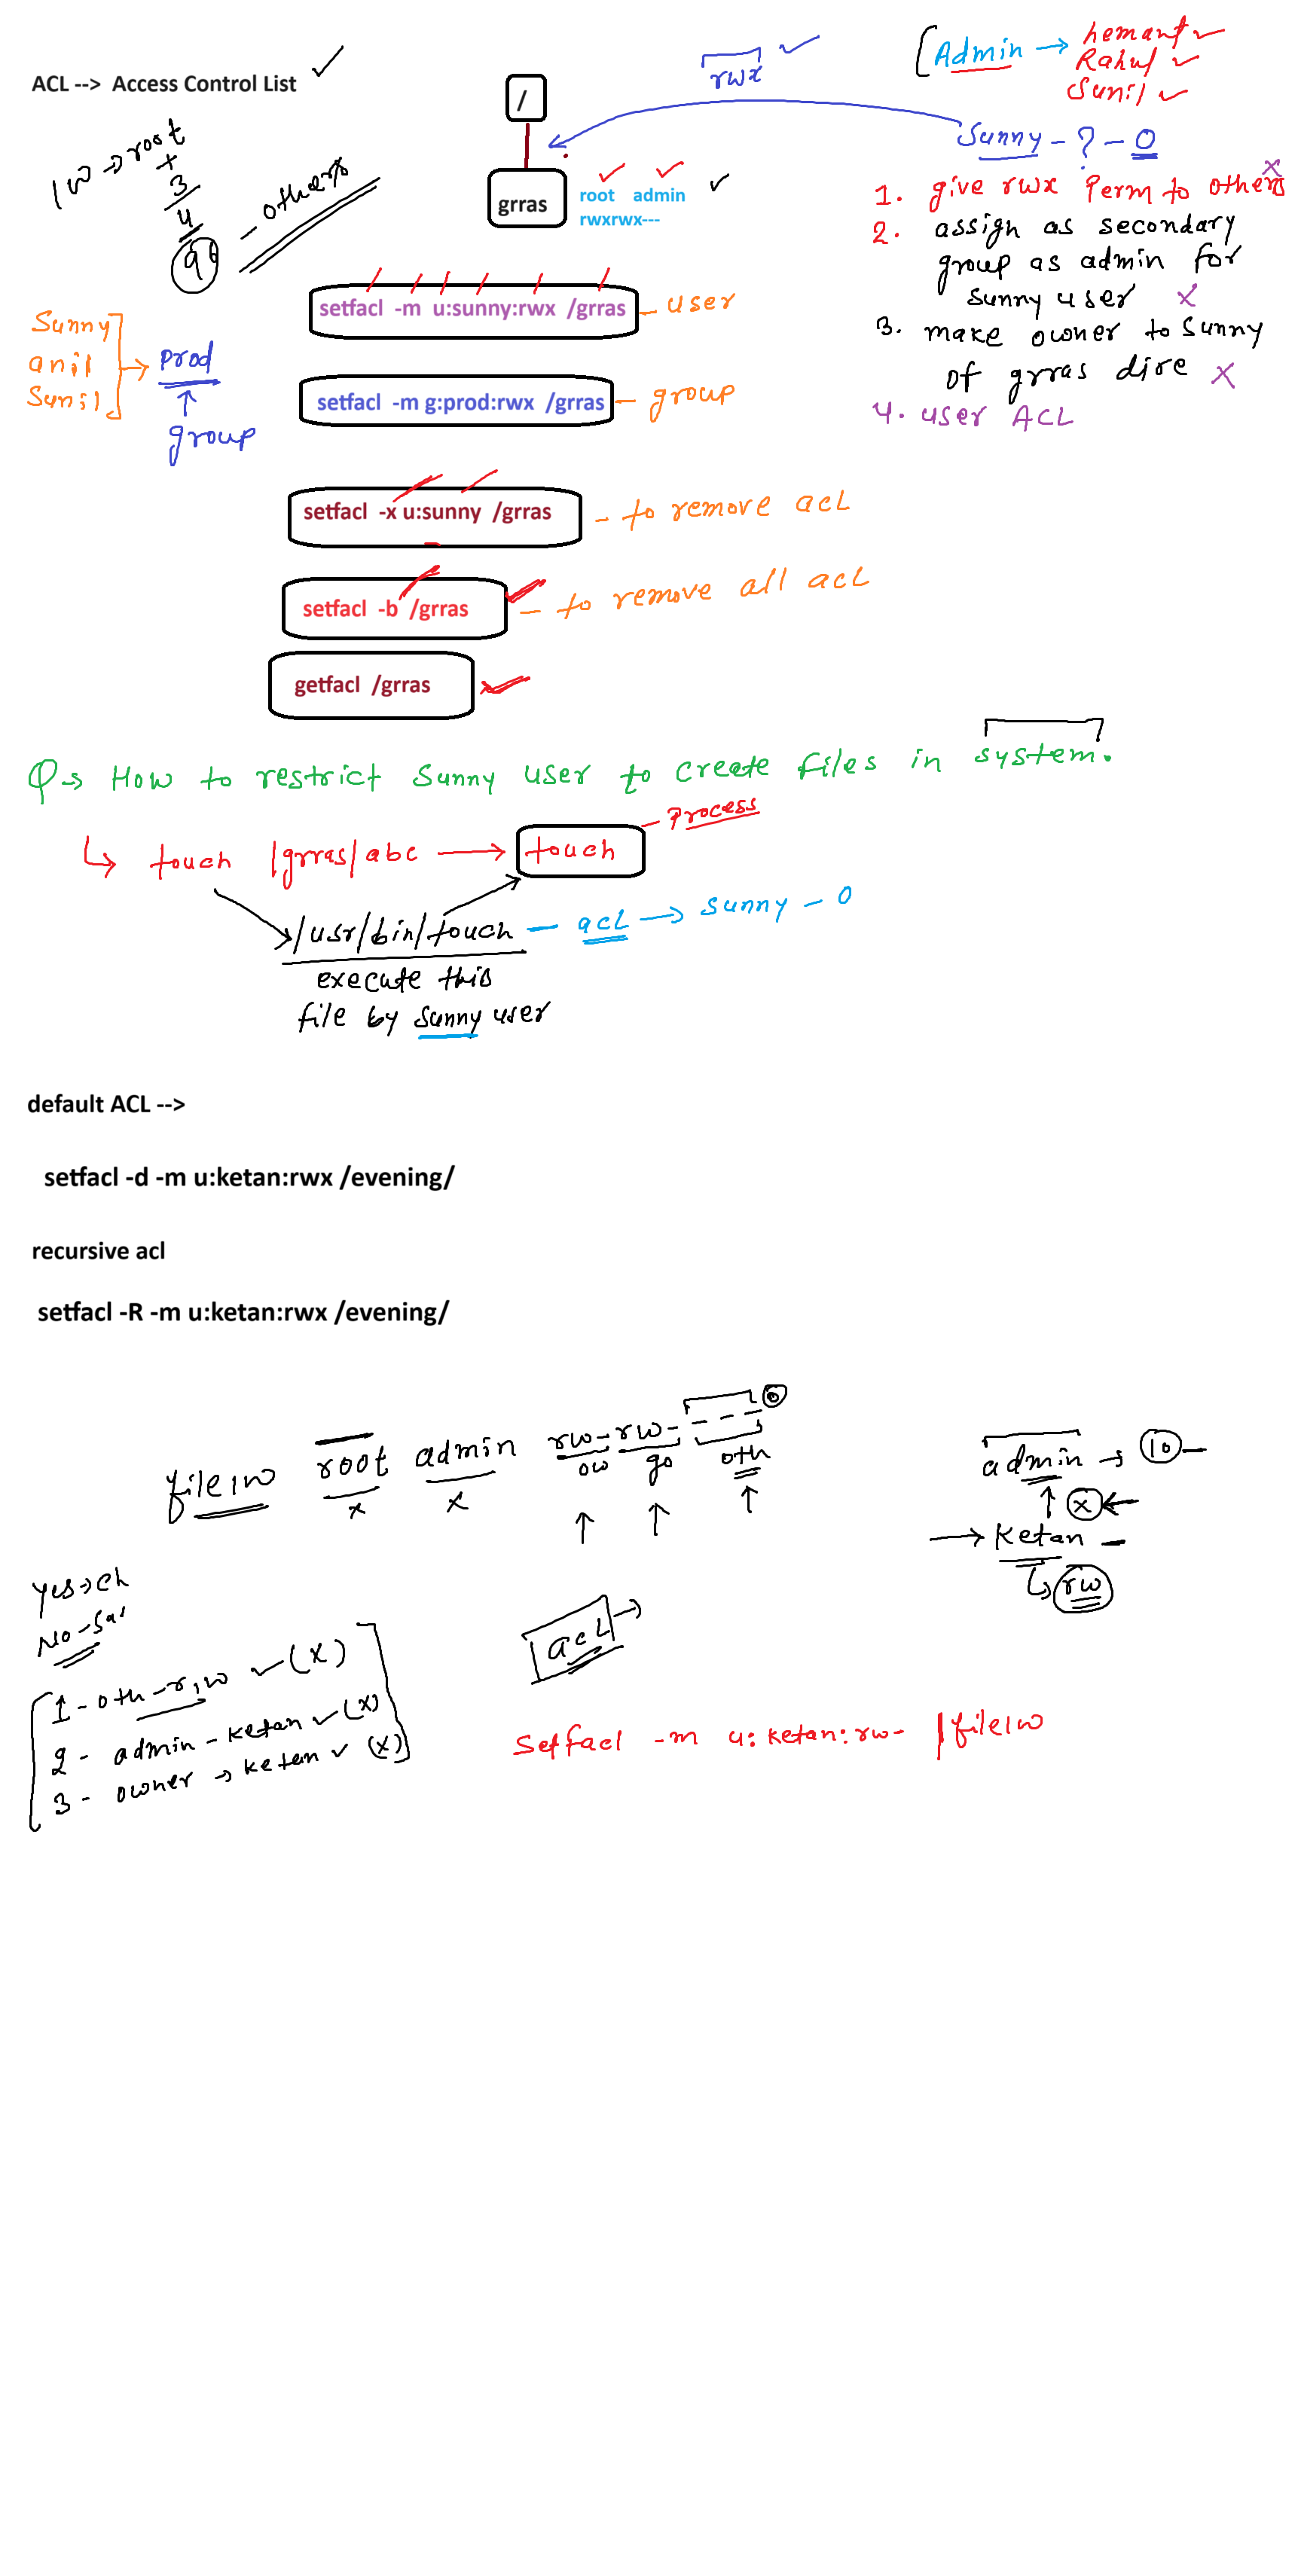 ACL --> Access Control List
/
grras
root admin
rwxrwx---
rwx
Admin → hemant
Rahul
Sunil
Sunny - ? - 0
1. give rwx Perm to others
2. assign as secondary
group as admin for
Sunny user x
3. make owner to Sunny
of grras dire x
4. user ACL
10 → root
+
3
4
- others
Sunny
anil
Sunil
→ Prod
↑
group
setfacl -m u:sunny:rwx /grras - user
setfacl -m g:prod:rwx /grras - group
setfacl -x u:sunny /grras - to remove acl
setfacl -b /grras - to remove all acl
getfacl /grras
Q→ How to restrict Sunny user to create files in system.
↳ touch /grras/abc → touch - Process
/usr/bin/touch - acl → Sunny - 0
execute this
file by Sunny user
default ACL -->
setfacl -d -m u:ketan:rwx /evening/
recursive acl
setfacl -R -m u:ketan:rwx /evening/
file10 root admin rw-rw---- 0
x x ow go oth
admin → 10 -
↑ x ←
→ Ketan -
↳ rw
Yes → ch
No -
1 - oth - r,w (x)
2 - admin - ketan (x)
3 - owner → ketan (x)
acl →
Setfacl -m u:ketan:rw- /file10